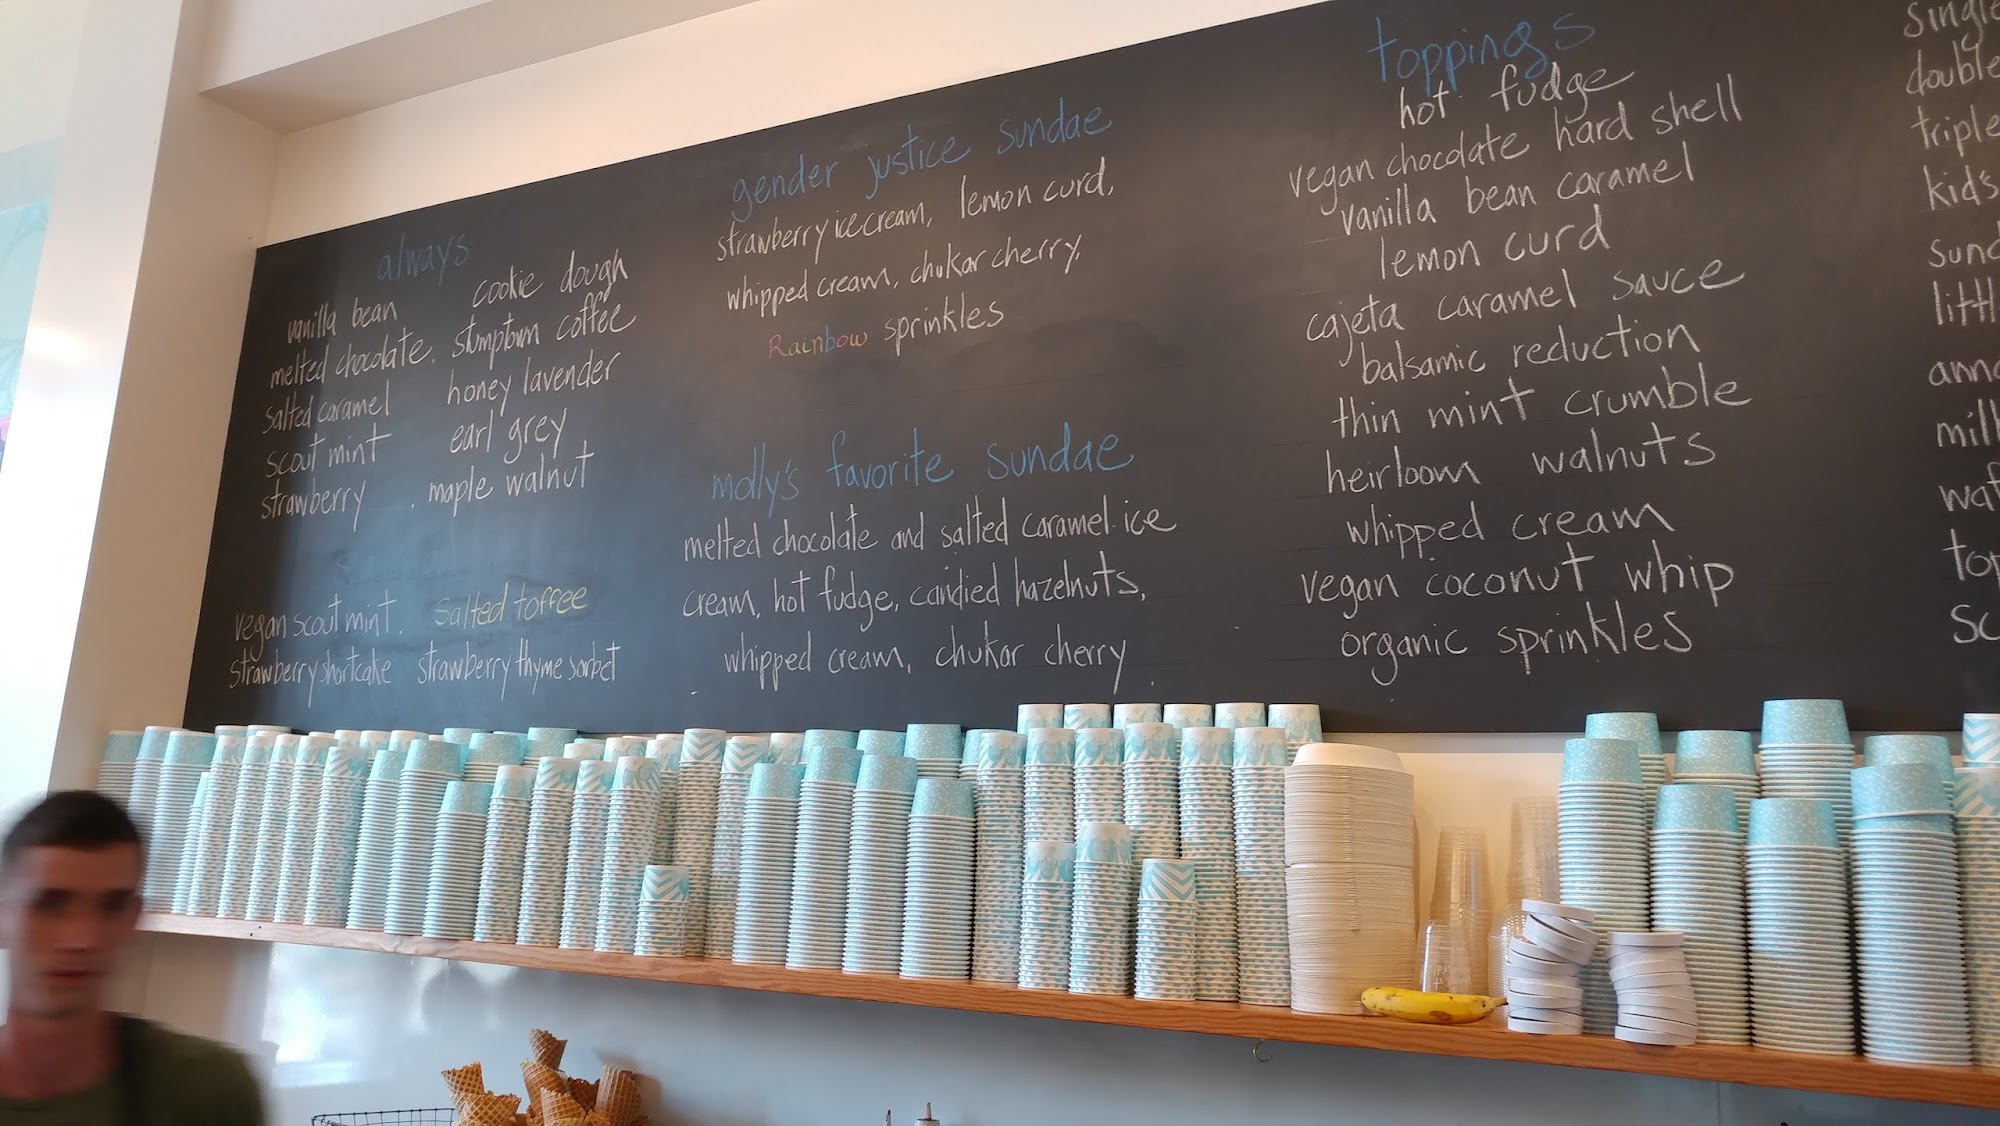 always
vanilla bean
melted chocolate.
salted caramel
scout mint
strawberry
cookie dough
stumptown coffee
honey lavender
earl grey
maple walnut
vegan scout mint.
strawberry shortcake
salted toffee
strawberry thyme sorbet
gender justice sundae
strawberry ice cream, lemon curd,
whipped cream, chukar cherry,
Rainbow sprinkles
molly's favorite sundae
melted chocolate and salted caramel ice
cream, hot fudge, candied hazelnuts,
whipped cream, chukar cherry
toppings
hot fudge
vegan chocolate hard shell
vanilla bean caramel
lemon curd
cajeta caramel sauce
balsamic reduction
thin mint crumble
heirloom walnuts
whipped cream
vegan coconut whip
organic sprinkles
single
double
triple
kid's